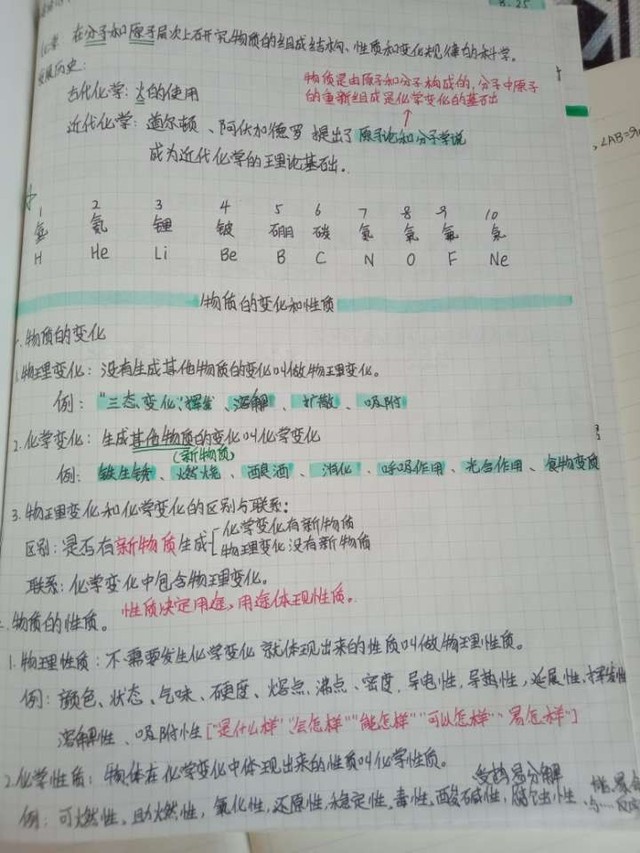 8.25
化学 在分子和原子层次上研究物质的组成结构、性质和变化规律的科学。
发展历史:
物质是由原子和分子构成的,分子中原子
的重新组成是化学变化的基础
古代化学:火的使用
近代化学:道尔顿、阿伏加德罗 提出了 原子论和分子学说
成为近代化学的理论基础。
∠AB=90
1 2 3 4 5 6 7 8 9 10
氢 氦 锂 铍 硼 碳 氮 氧 氟 氖
H He Li Be B C N O F Ne
物质的变化和性质
一.物质的变化
1.物理变化:没有生成其他物质的变化叫做物理变化。
例:"三态变化"、挥发、溶解、扩散、吸附
2.化学变化:生成其他物质的变化叫化学变化
(新物质)
例:铁生锈、燃烧、酿酒、消化、呼吸作用、光合作用、食物变质
3.物理变化和化学变化的区别与联系:
区别:是否有新物质生成
化学变化有新物质
物理变化没有新物质
联系:化学变化中包含物理变化。
性质决定用途,用途体现性质。
二.物质的性质。
1.物理性质:不需要发生化学变化就体现出来的性质叫做物理性质。
例:颜色、状态、气味、硬度、熔点、沸点、密度、导电性,导热性,延展性,挥发性
溶解性、吸附性["是什么样""会怎样""能怎样""可以怎样""易怎样"]
2.化学性质:物体在化学变化中体现出来的性质叫化学性质。
受热易分解
例:可燃性,助燃性,氧化性,还原性,稳定性,毒性,酸碱性,腐蚀性、